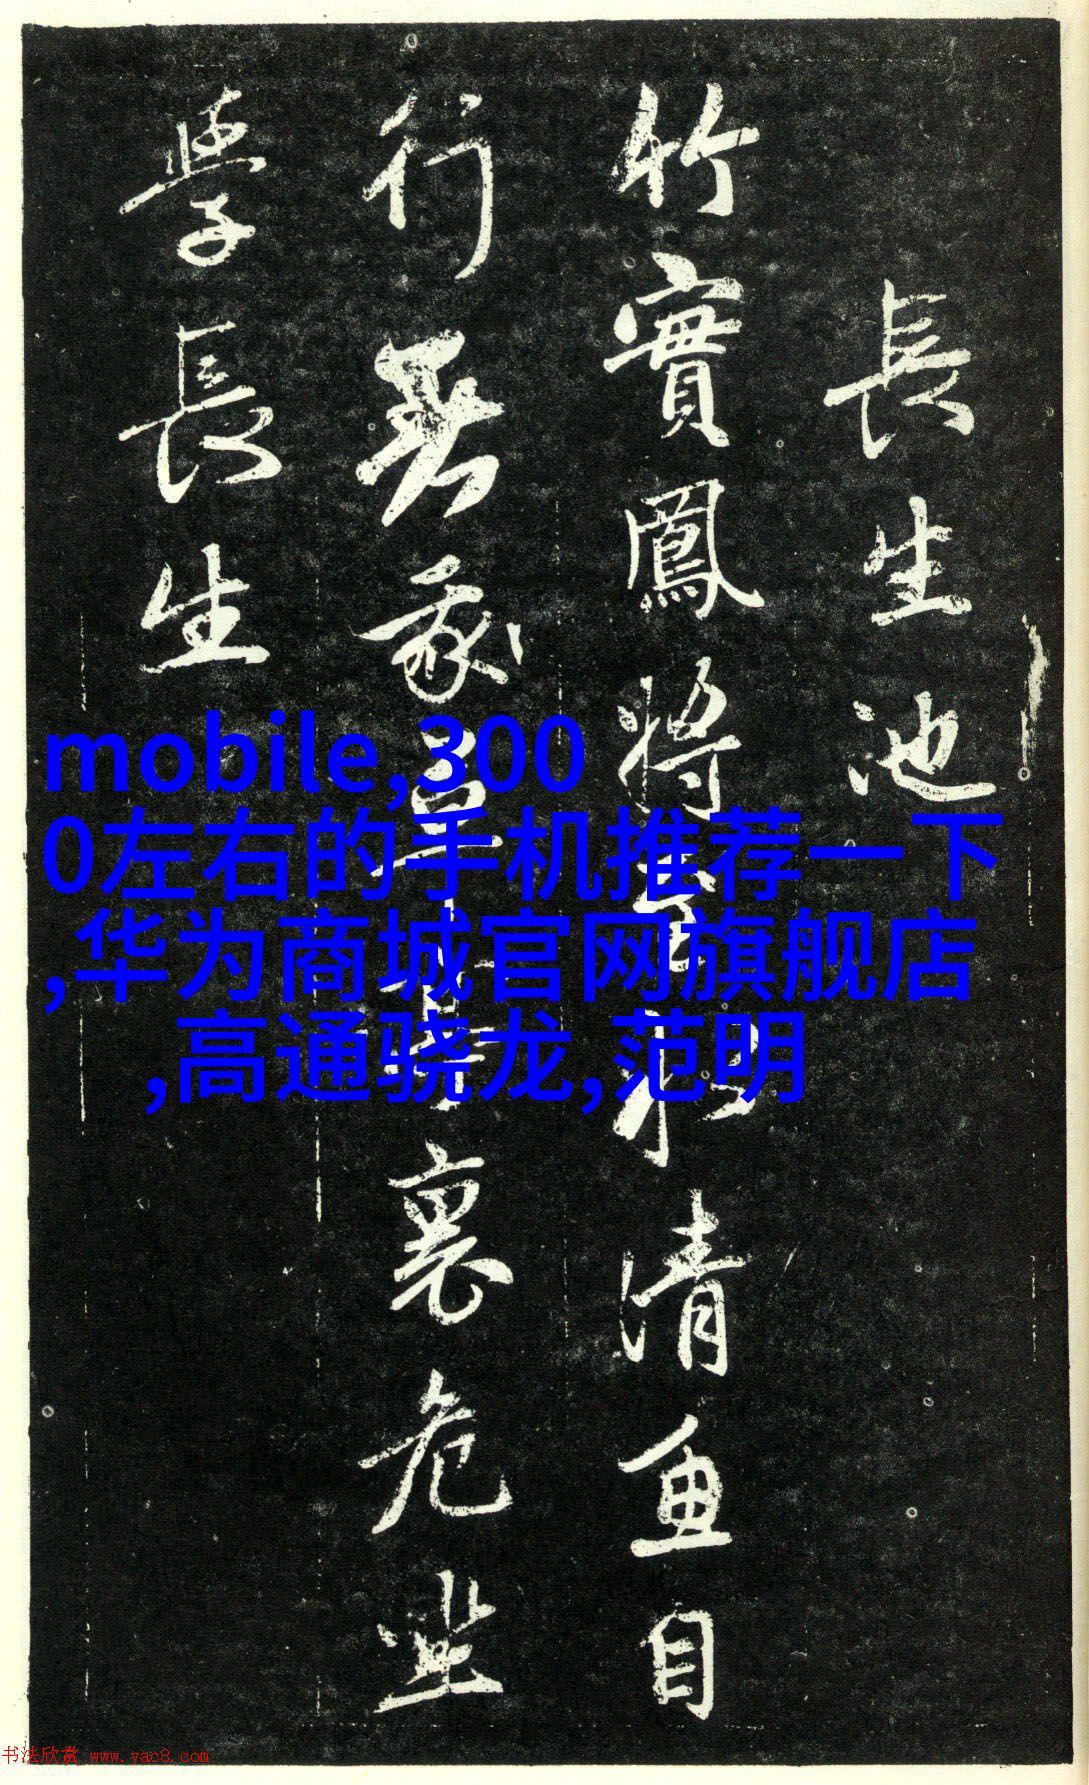 長生池
竹實鳳將至水清魚自
行我草亭裏危坐
學長生
mobile,300
0左右的手机推荐一下
,华为商城官网旗舰店
,高通骁龙,范明
书法欣赏 www.yac8.com